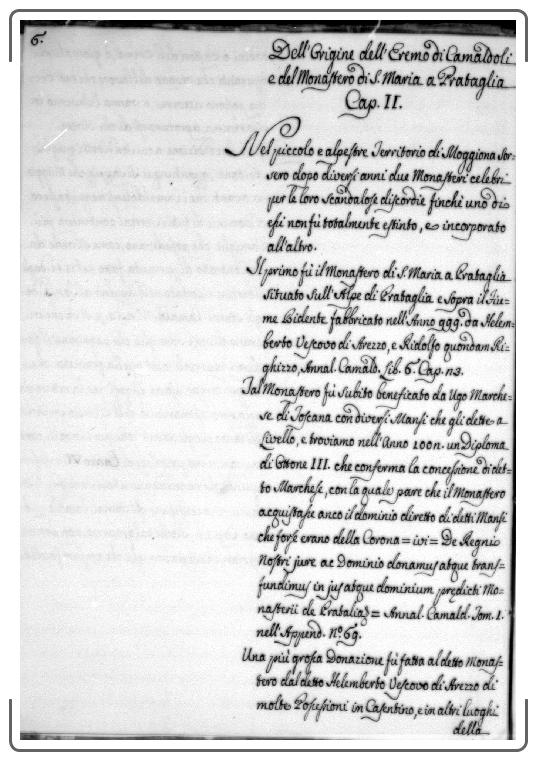 6.
Dell'Origine dell'Eremo di Camaldoli
e del Monastero di S. Maria a Prataglia
Cap. II.
Nel piccolo e alpestre Territorio di Moggiona sor=
sero dopo diversi anni due Monasteri celebri
per le loro scandalose discordie finché uno di
essi non fù totalmente estinto, e incorporato
all'altro.
Il primo fù il Monastero di S. Maria a Prataglia
situato sull'Alpe di Prataglia e sopra il Fiu=
me Bidente fabbricato nell'Anno 999. da Helem=
berto Vescovo di Arezzo, e Ridolfo quondam Ri=
ghizzo, Annal. Camald. Lib. 6. Cap. n3.
Tal Monastero fù subito beneficato da Ugo Marche=
se di Toscana con diversi Mansi che gli dette a
Livello, e troviamo nell'Anno 1002. un Diploma
di Ottone III. che conferma la concessione di det=
to Marchese, con la quale pare che il Monastero
acquistasse anco il dominio diretto di detti Mansi
che forse erano della Corona = ivi = De Regnio
nostri jure ac Dominio donamus atque trans=
fundimus in jus atque dominium prędicti Mo=
nasterii de Pratalia = Annal. Camald. Tom. 1.
nell'Append. N.º 69.
Una più grossa Donazione fù fatta al detto Monas=
tero dal detto Helemberto Vescovo di Arezzo di
molte Possessioni in Casentino, e in altri luoghi
della